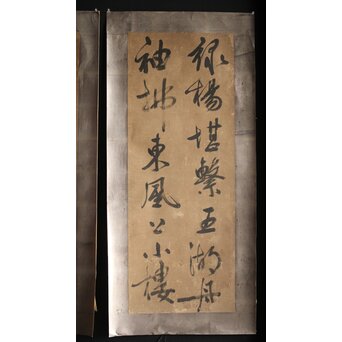 綠楊堪繫五湖舟
袖拂東風上小樓